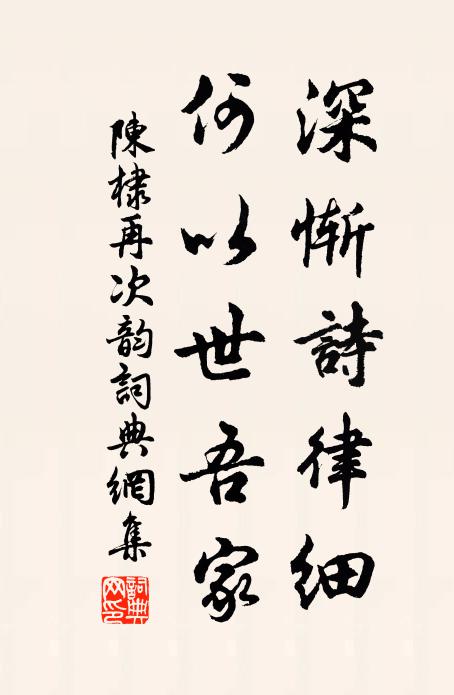 深慚詩律細
何以世吾家
陳棣再次韵詞典網集
詞典網印